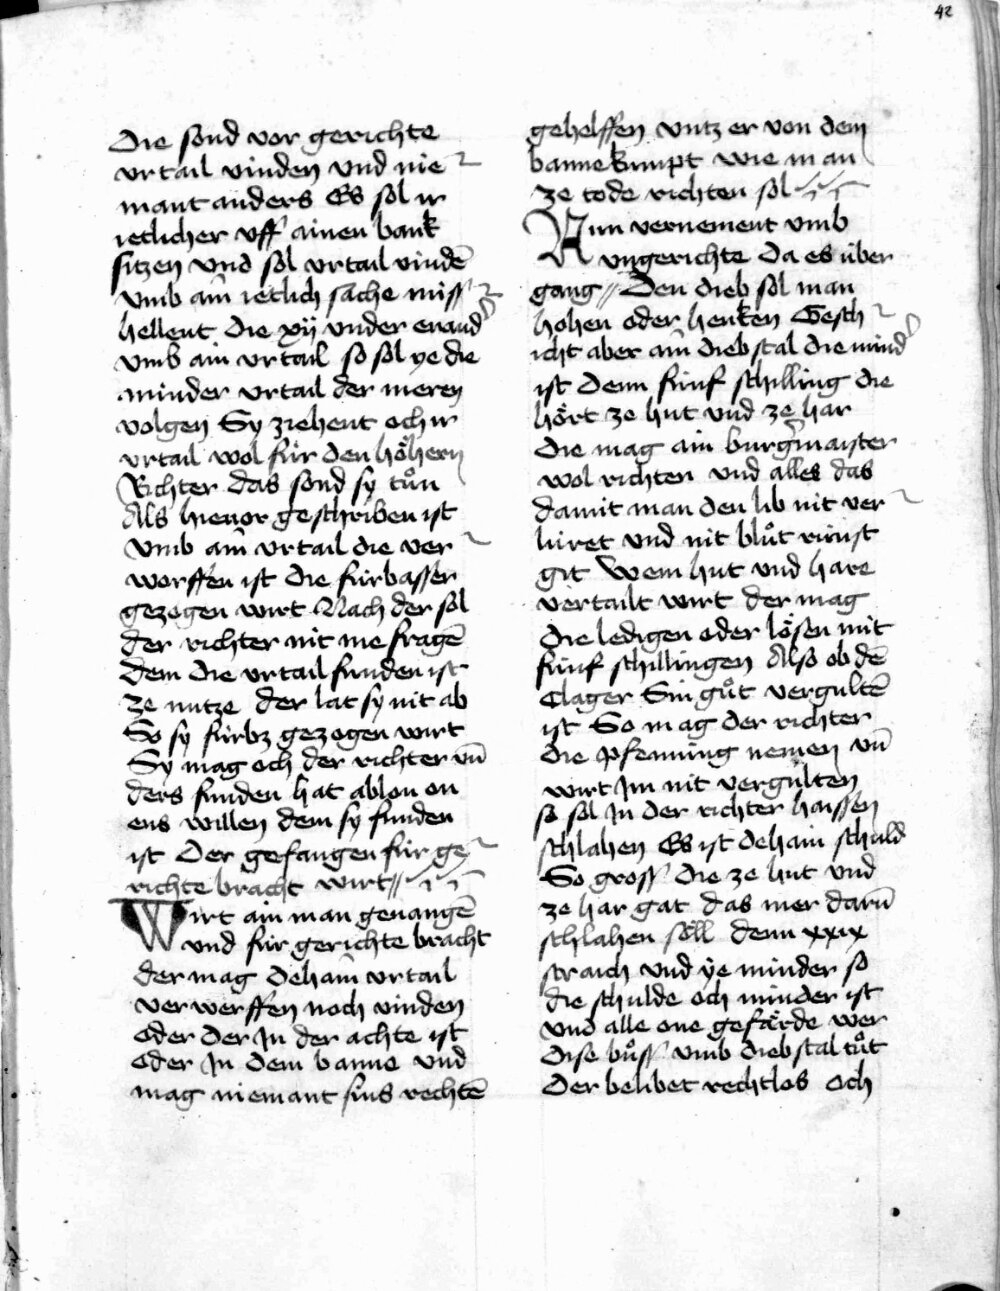 42
Die sond vor gerichte
vrtail vinden vnd nie
mant anders Es sol ir
ietlicher vff ainen bank
sitzen vnd sol vrtail vindē
vmb ain̄ ietlich sache miss
hellent die xij vnder enand
vmb ain vrtail so sol ye die
minder vrtail der meren
volgen Sy ziehent och ir
vrtail wol für den höhern
Richter das sond sy tůn
Als hieuor geschriben ist
vmb ain̄ vrtail die ver
worffen ist die fürbasser
gezogen wirt Nach der sol
der richter nit me fragē
dem die vrtail funden ist
ze nutze der lat sy nit ab
So sy fürbz gezogen wirt
Sy mag och der richter vn̄
ders funden hat ablon on
ens willen dem sy funden
ist Der gefangen für ge
richte bracht wirt
Wirt ain man geuangē
vnd für gerichte bracht
der mag dehain̄ vrtail
verwerffen noch vinden
oder der Jn der achte ist
oder Jn dem banne vnd
mag niemant sins rechtē
gehelffen vntz er von dem
banne kumpt wie man
ze tode richten sol
Nun vernement vmb
vngerichte Da es über
gang Den dieb sol man
hohen oder henken Gesch
icht aber ain̄ diebstal die mind
ist denn fünf schilling die
hört ze hut vnd ze har
die mag ain burgmaister
wol richten vnd alles das
damit man den lib nit ver
lüret vnd nit blůt rinst
git Wem hut vnd hare
vertailt wirt der mag
die ledigen oder lösen mit
fünf schillingen Also ob dē
Clager Sin gůt vergultē
ist So mag der richter
die pfenning nemen vn̄
wirt Jm nit vergulten
so sol Jn der richter haissen
schlahen Es ist dehain schuld
So gross die ze hut vnd
ze har gat das mer darū
schlahen söll denn xxxix
straich vnd ye minder so
die schulde och minder ist
vnd alle one gefärde wer
dise bůss vmb diebstal tůt
der belibet rechtlos och